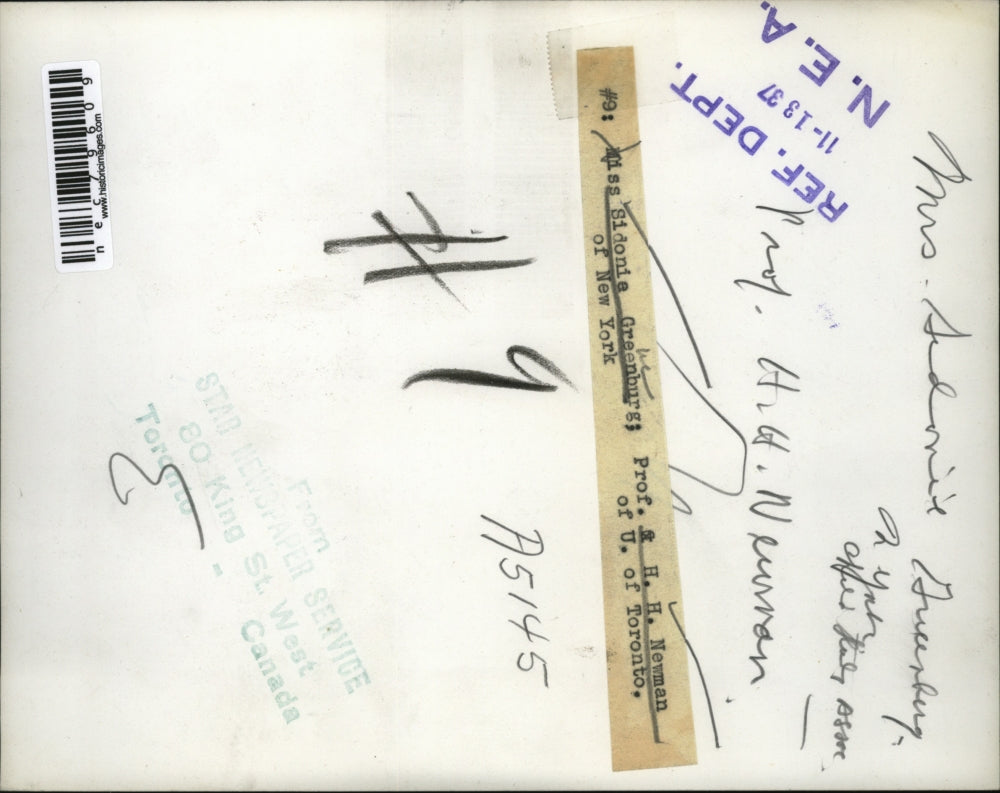 Mrs. Sidonie Gruenberg.
N. E. A.
11-13 37
REF. DEPT.
Prof. H. H. Newman
#9: Miss Sidonia Greenburg; Prof. & H. H. Newman
of New York of U. of Toronto.
ue
# 9
A5145
From
STAR NEWSPAPER SERVICE
80 King St. West
Toronto - Canada
nec79609
www.historicimages.com